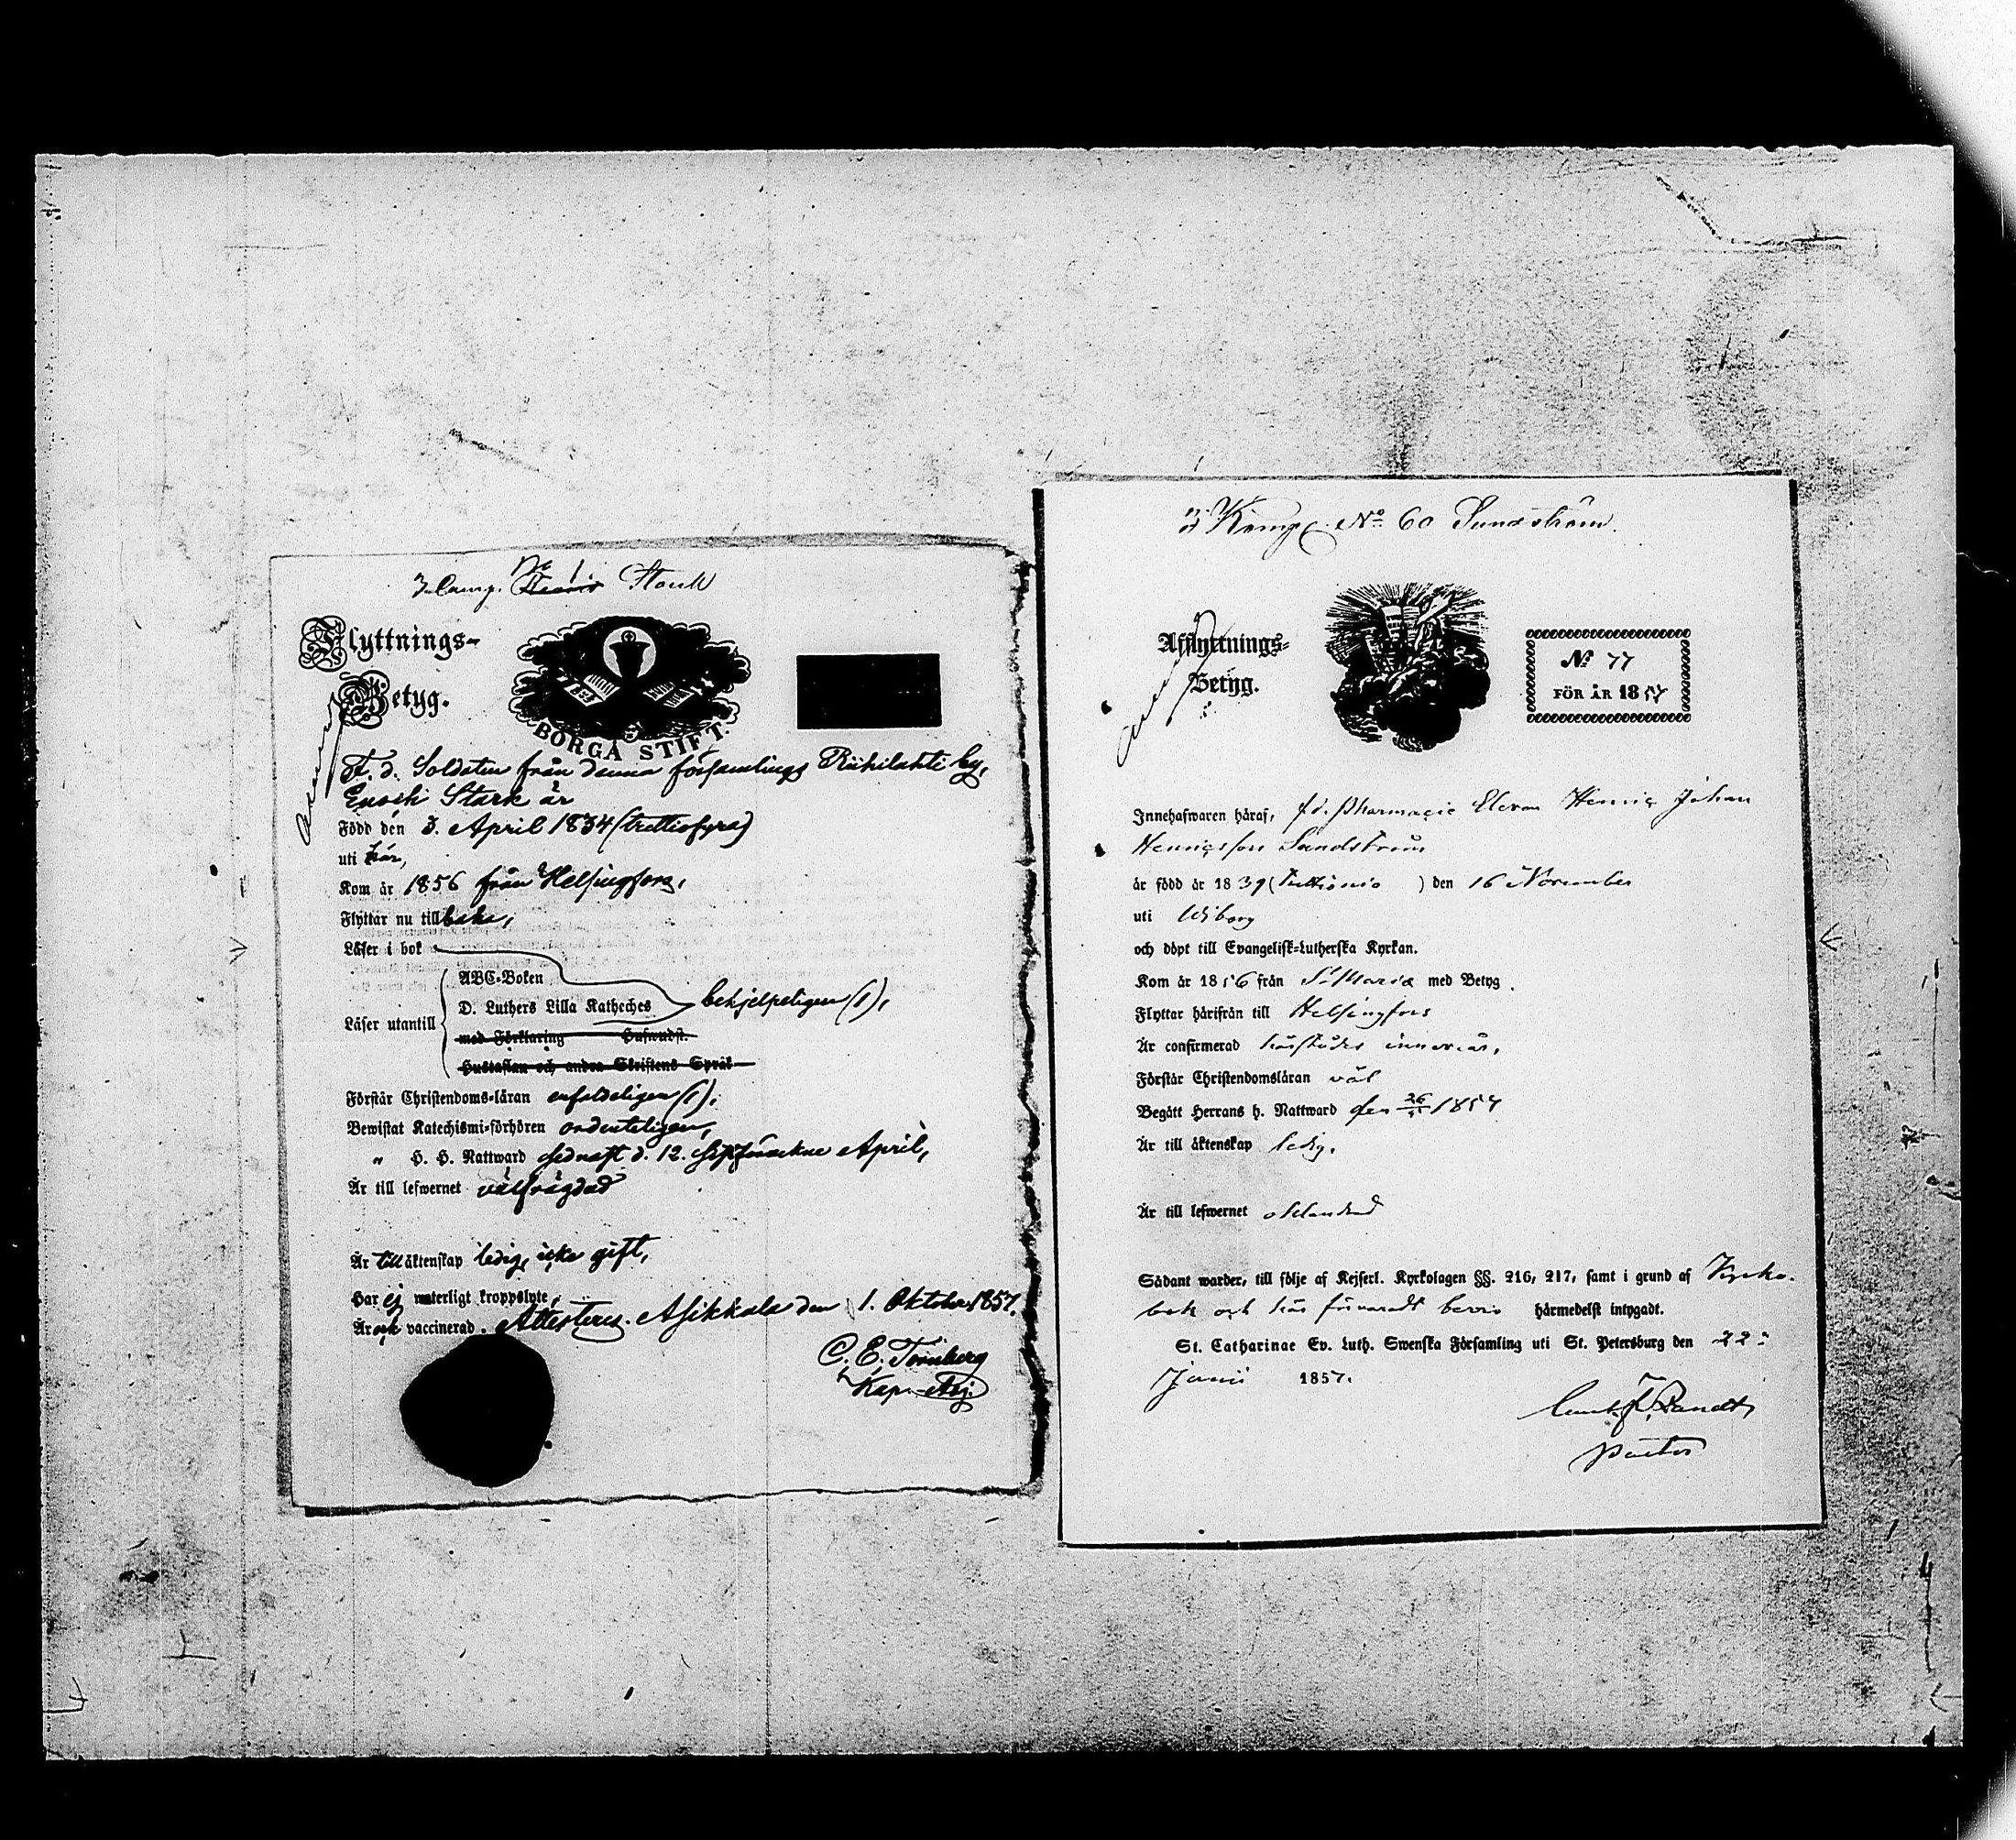 3 Comp. No 1. Stark
Flyttnings-
Betyg.
BORGÅ STIFT.
F. d. Soldaten från denna församlings Riihilahti by,
Enoch Stark är
Född den 3. April 1834 (trettiofyra)
uti här,
Kom år 1856 från Helsingfors,
Flyttar nu tillbaka,
Läser i bok
ABC-Boken
D. Luthers Lilla Katheches
Läser utantill
bekjelpeligen (1),
med Förklaring Hufwudst.
Hustaflan och andra Skriftens Språk
Förstår Christendoms-läran enfaldeligen (1),
Bewistat Katechismi-förhören ordenteligen,
" H. H. Nattward sednast d. 12. sistförvekne April,
Är till lefwernet välfrägdad
Är till äktenskap ledig, icke gift,
Har ej naterligt kroppslyte,
Är ock vaccinerad. Attesteras. Asikkala den 1. Oktober 1857.
C. E. Törnberg
Kap. Adj.
3 Komp. No 60 Sundström.
Afflyttnings-
Betyg.
No 77
FÖR ÅR 1857
Innehafwaren häraf, f.d. Pharmacie Eleven Henric Johan
Henricsson Sundström
är född år 1839 (Trettionio) den 16 November
uti Wiborg
och döpt till Evangelisk-Lutherska Kyrkan.
Kom år 1856 från St Maria med Betyg.
Flyttar härifrån till Helsingfors
Är confirmerad härstädes innevar.
Förstår Christendomsläran väl
Begått Herrans h. Nattward den 26 1857
Är till äktenskap ledig.
Är till lefwernet oklandrad
Sådant warder, till följe af Kejserl. Kyrkolagen §§. 216, 217, samt i grund af Kyrko-
bok och här förvaradt bevis härmedelst intygadt.
St. Catharinae Ev. Luth. Swenska Församling uti St. Petersburg den 22:
Junii 1857.
Brandt
Pastor